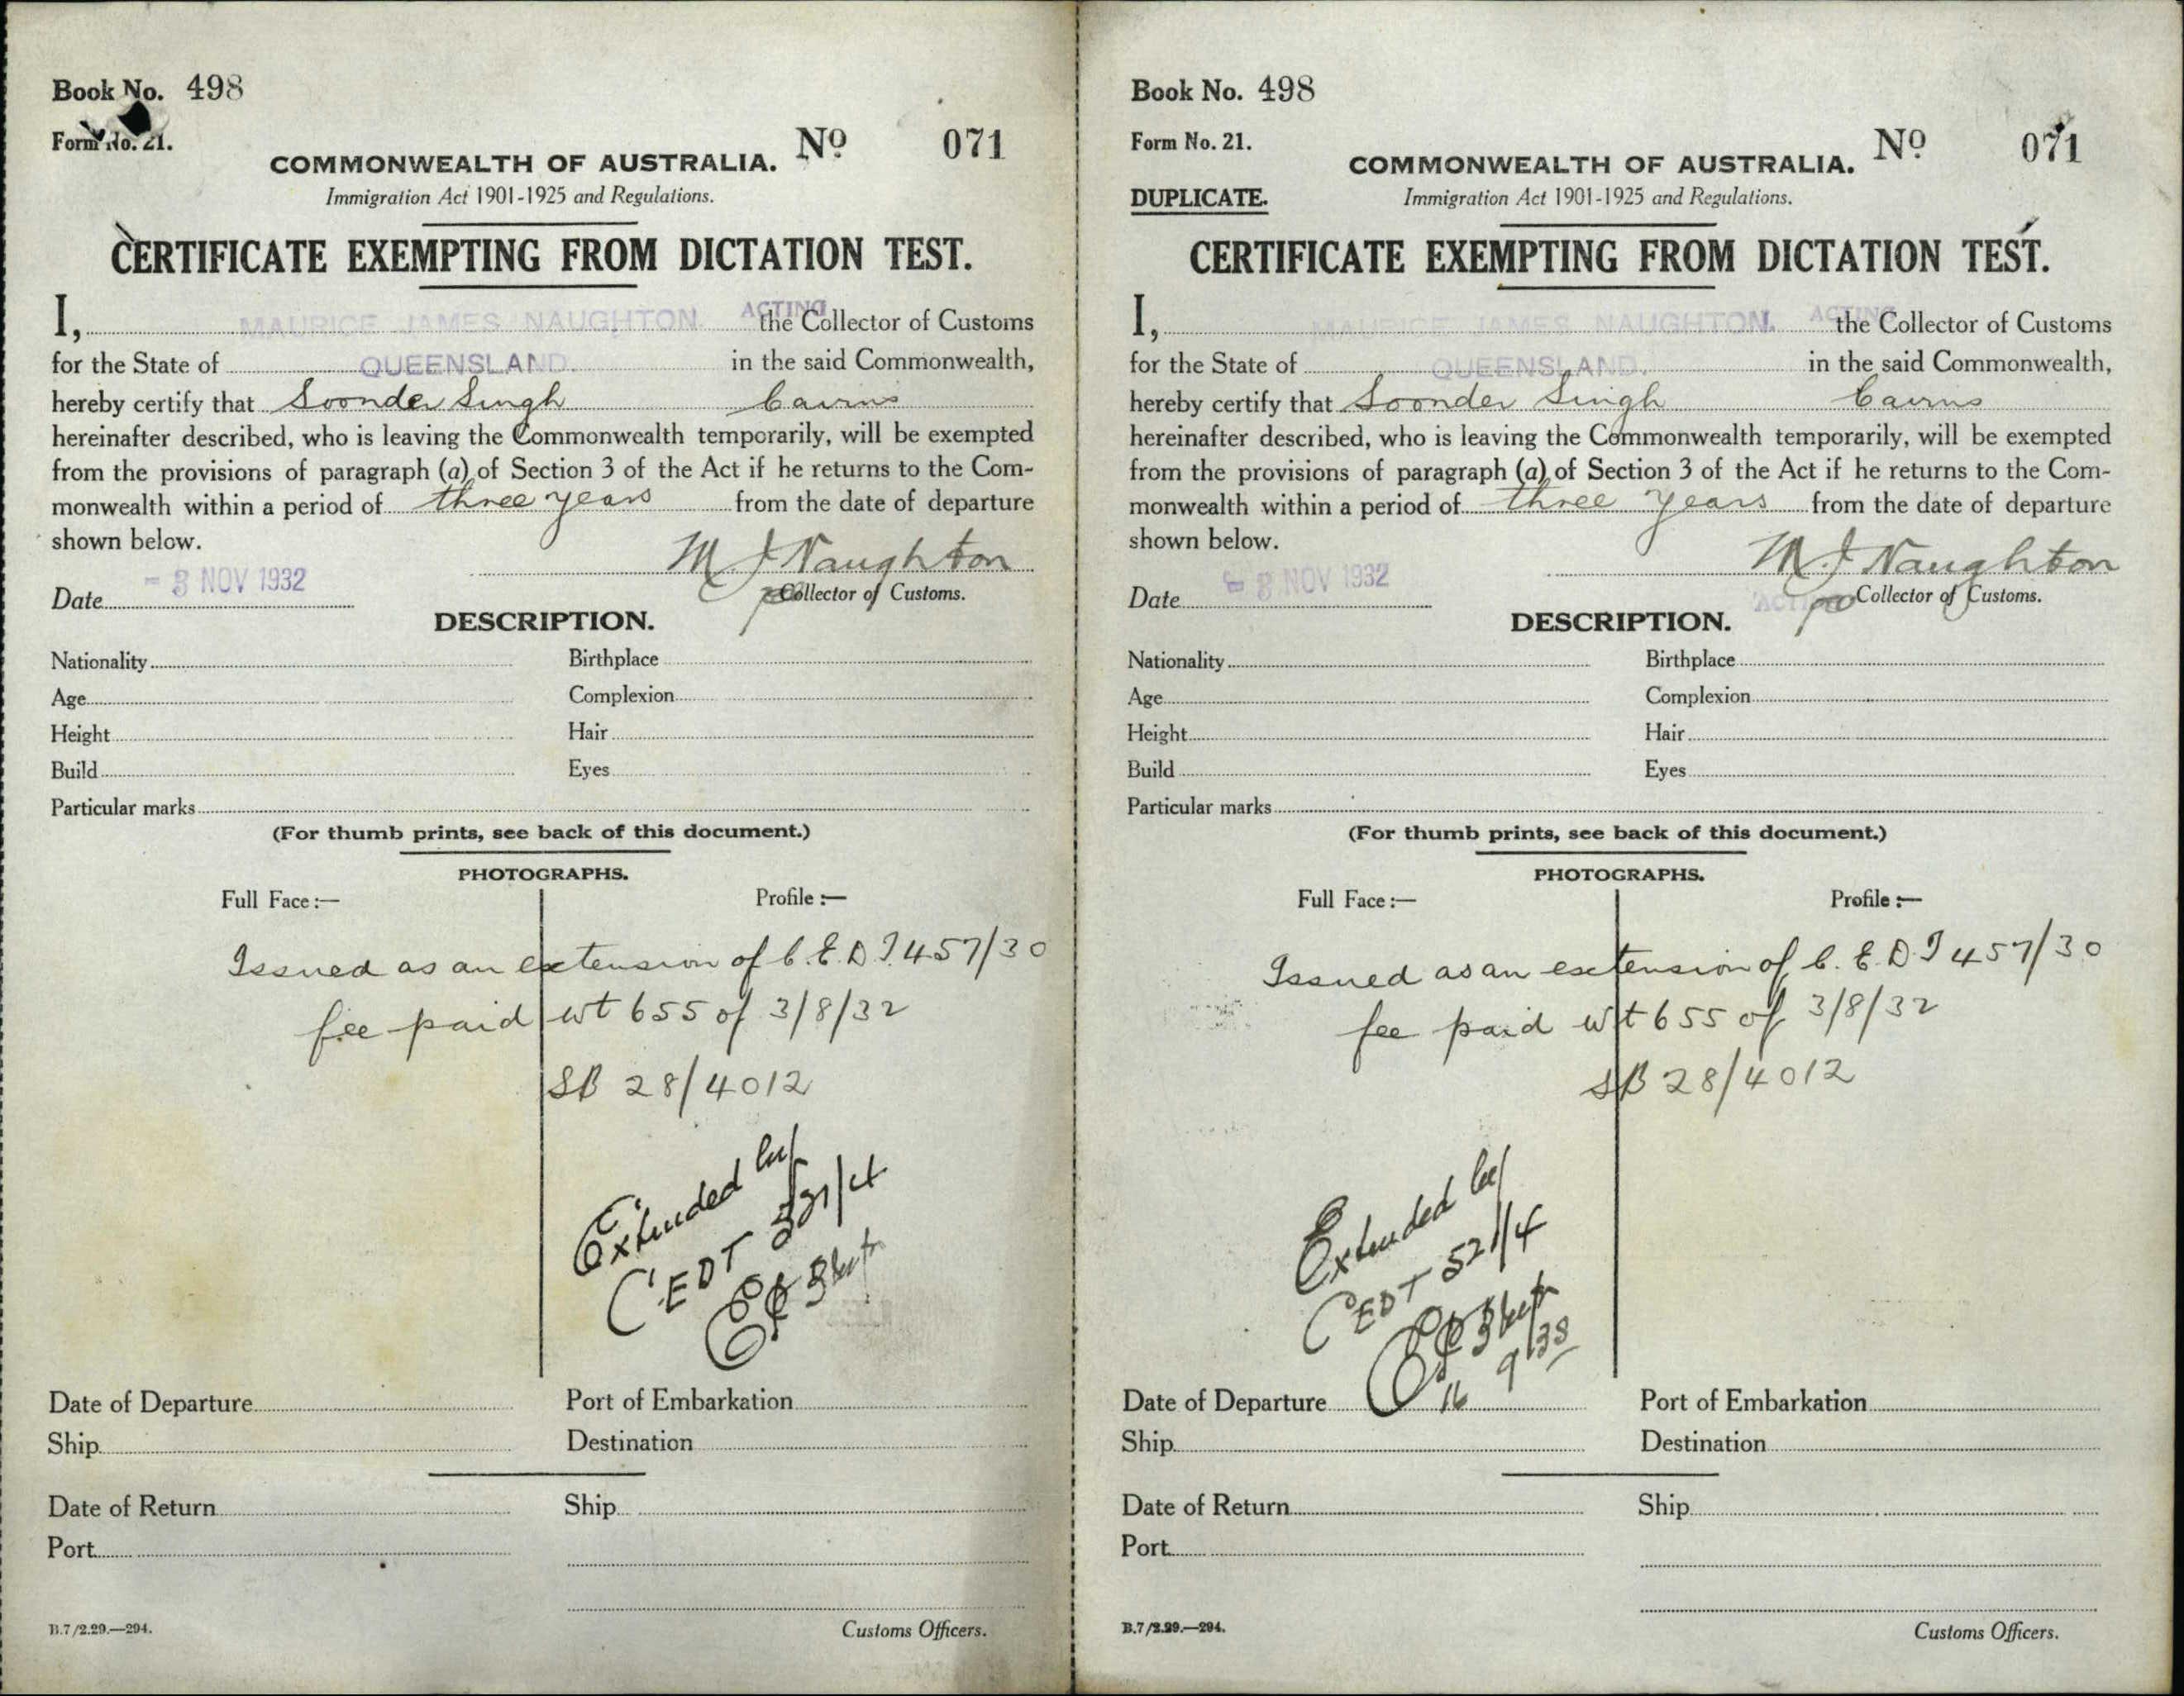 Book No. 498
Form No. 21.
COMMONWEALTH OF AUSTRALIA. No 071
Immigration Act 1901-1925 and Regulations.
CERTIFICATE EXEMPTING FROM DICTATION TEST.
I, MAURICE JAMES NAUGHTON. ACTING the Collector of Customs
for the State of QUEENSLAND. in the said Commonwealth,
hereby certify that Soonder Singh Cairns
hereinafter described, who is leaving the Commonwealth temporarily, will be exempted
from the provisions of paragraph (a) of Section 3 of the Act if he returns to the Com-
monwealth within a period of three years from the date of departure
shown below.
M J Naughton
Date - 3 NOV 1932
Collector of Customs.
DESCRIPTION.
Nationality Birthplace
Age Complexion
Height Hair
Build Eyes
Particular marks
(For thumb prints, see back of this document.)
PHOTOGRAPHS.
Full Face :— Profile :—
Issued as an extension of C.E.D.T. 457/30
fee paid wt 655 of 3/8/32
SB 28/4012
Extended by
CEDT 521/4
Date of Departure Port of Embarkation
Ship Destination
Date of Return Ship
Port
B.7/2.29.—294. Customs Officers.
Book No. 498
Form No. 21.
COMMONWEALTH OF AUSTRALIA. No 071
DUPLICATE. Immigration Act 1901-1925 and Regulations.
CERTIFICATE EXEMPTING FROM DICTATION TEST.
I, MAURICE JAMES NAUGHTON. ACTING the Collector of Customs
for the State of QUEENSLAND. in the said Commonwealth,
hereby certify that Soonder Singh Cairns
hereinafter described, who is leaving the Commonwealth temporarily, will be exempted
from the provisions of paragraph (a) of Section 3 of the Act if he returns to the Com-
monwealth within a period of three years from the date of departure
shown below.
M. J Naughton
Date - 3 NOV 1932
ACTING Collector of Customs.
DESCRIPTION.
Nationality Birthplace
Age Complexion
Height Hair
Build Eyes
Particular marks
(For thumb prints, see back of this document.)
PHOTOGRAPHS.
Full Face :— Profile :—
Issued as an extension of C.E.D.T 457/30
fee paid wt 655 of 3/8/32
SB 28/4012
Extended by
CEDT 521/4
16 9/38
Date of Departure Port of Embarkation
Ship Destination
Date of Return Ship
Port
B.7/2.29.—294. Customs Officers.